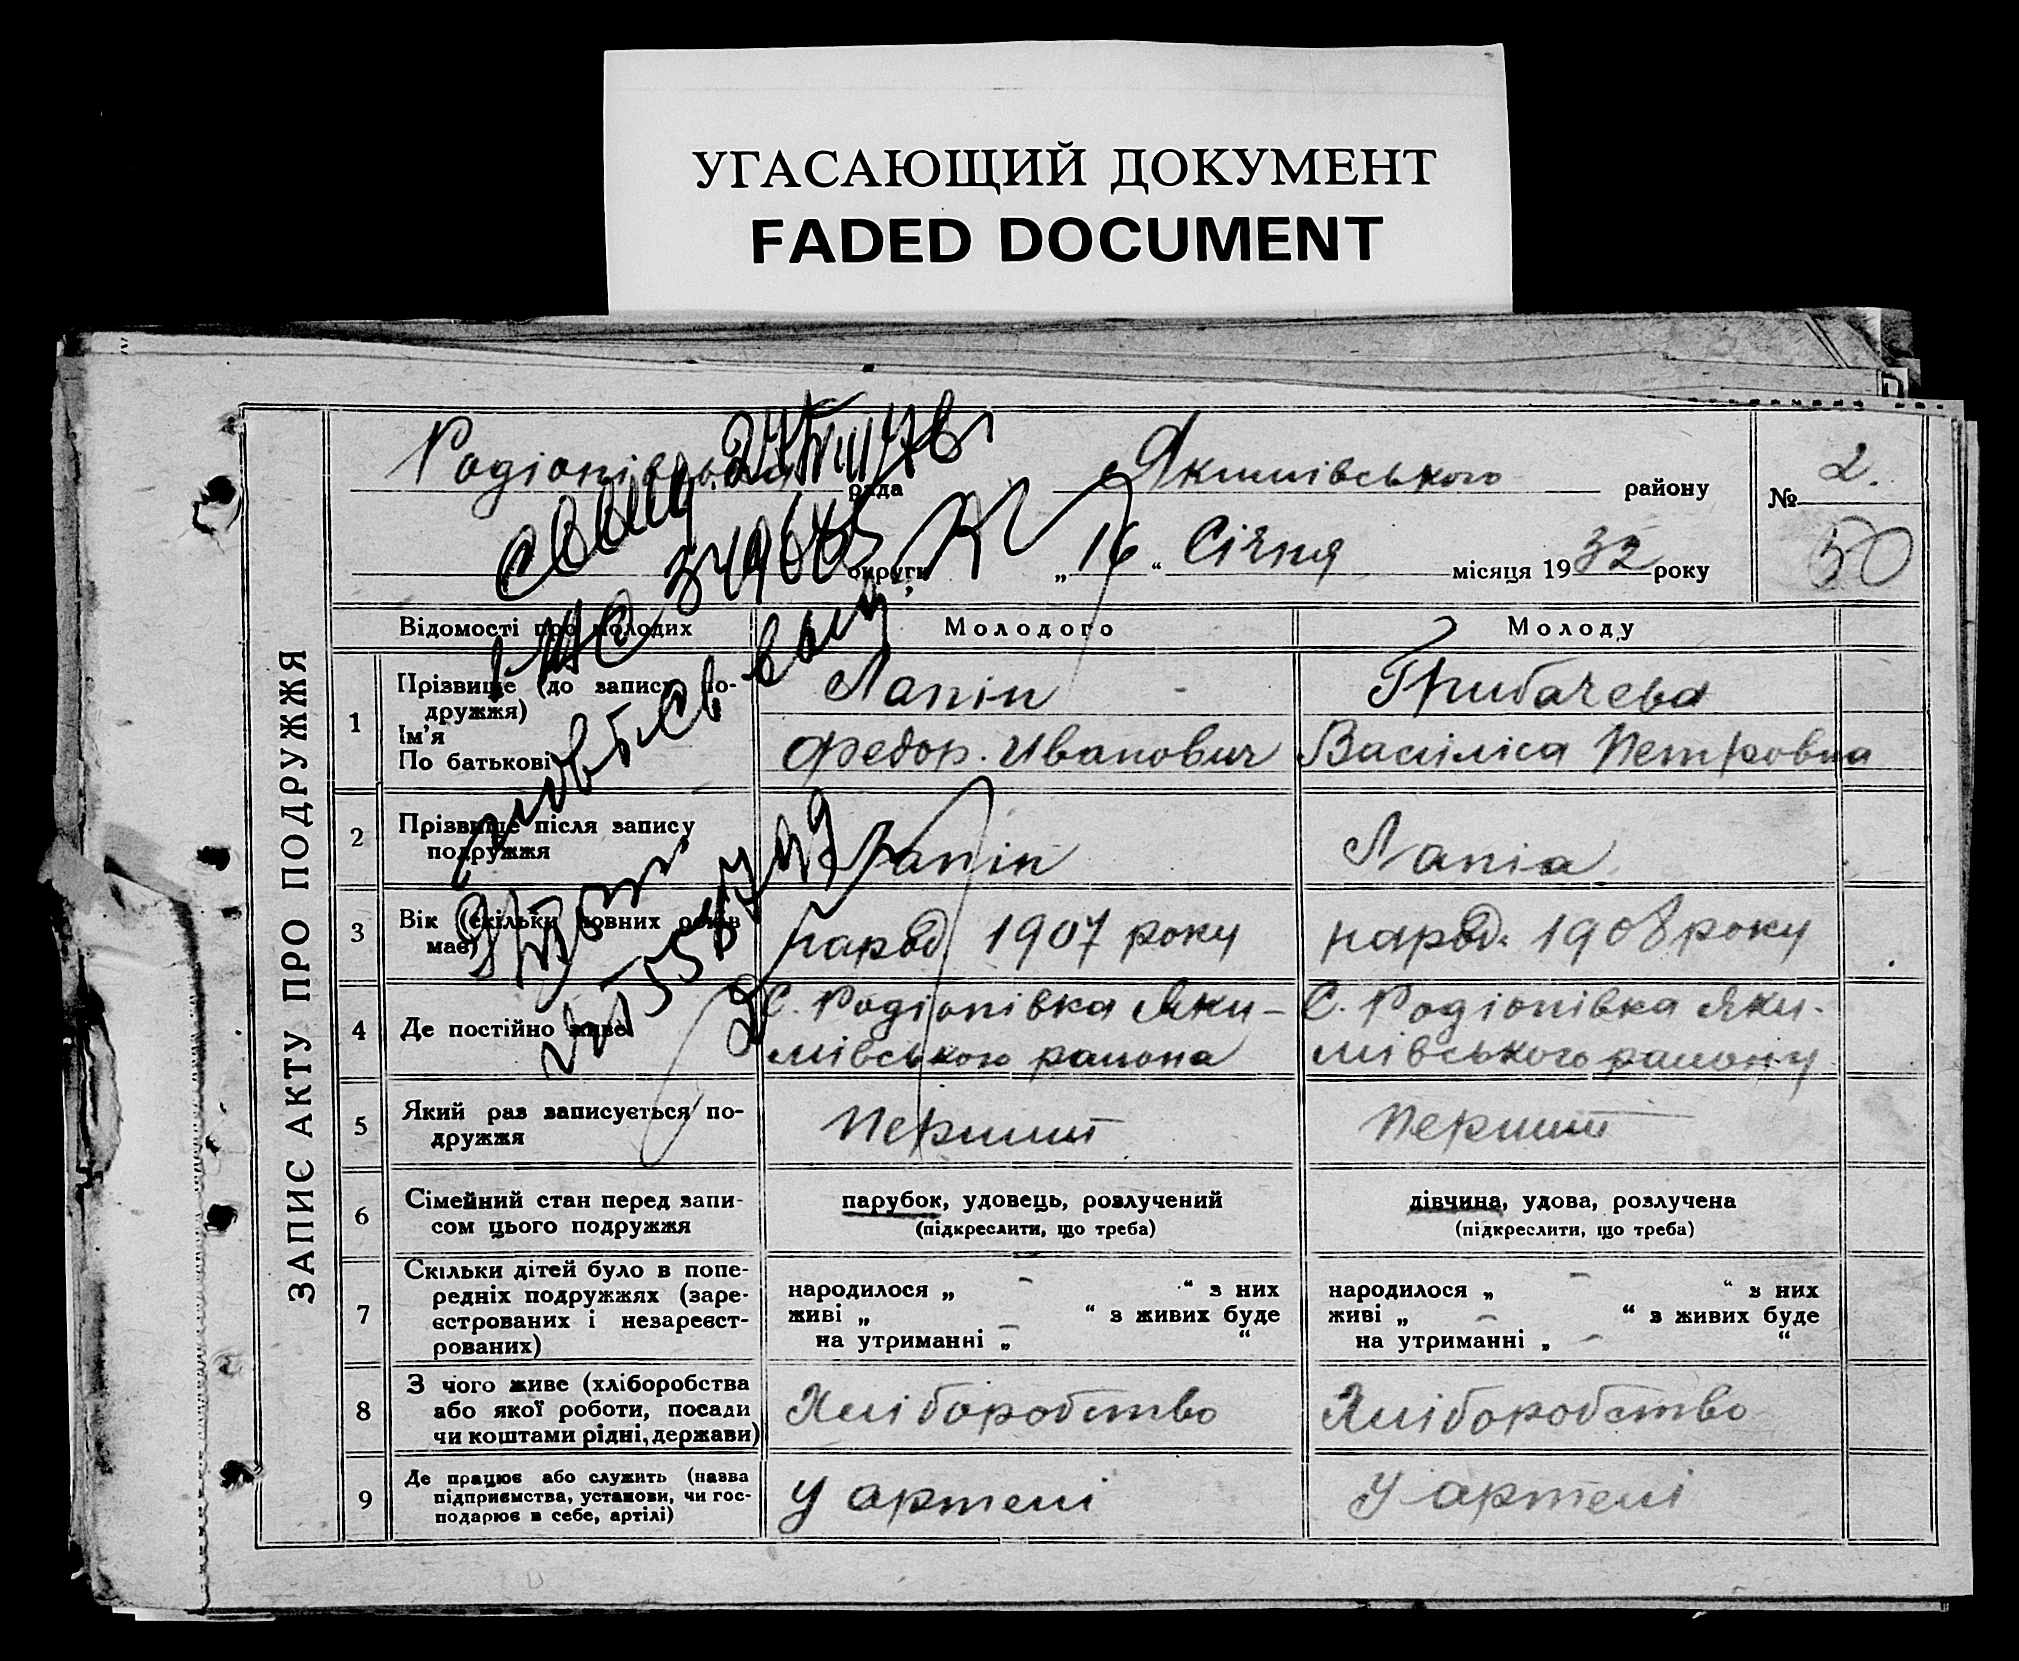 УГАСАЮЩИЙ ДОКУМЕНТ
FADED DOCUMENT
ЗАПИС АКТУ ПРО ПОДРУЖЖЯ
рада
Якимівського району
№ 2.
50
округи „16“ Січня місяця 1932 року
Відомості про молодих
Молодого
Молоду
1
Прізвище (до запису по-
дружжя)
Ім'я
По батькові
Лапін
Федор. Иванович
Грибачева
Васіліса Петровна
2
Прізвище після запису
подружжя
Лапін
Лапіа
3
Вік (скільки повних років
має)
народ. 1907 року
народ. 1908 року
4
Де постійно живе
С. Родіонівка Яки-
мівського района
С. Родіонівка Яки-
мівського району
5
Який раз записується по-
дружжя
Перший
Перший
6
Сімейний стан перед запи-
сом цього подружжя
парубок, удовець, розлучений
(підкреслити, що треба)
дівчина, удова, розлучена
(підкреслити, що треба)
7
Скільки дітей було в попе-
редніх подружжях (заре-
єстрованих і незареєст-
рованих)
народилося „ – “ з них
живі „ – “ з живих буде
на утриманні „ – “
народилося „ – “ з них
живі „ – “ з живих буде
на утриманні „ – “
8
З чого живе (хліборобства
або якої роботи, посади
чи коштами рідні, держави)
Хліборобство
Хліборобство
9
Де працює або служить (назва
підприємства, установи, чи гос-
подарює в себе, артілі)
У артелі
У артелі